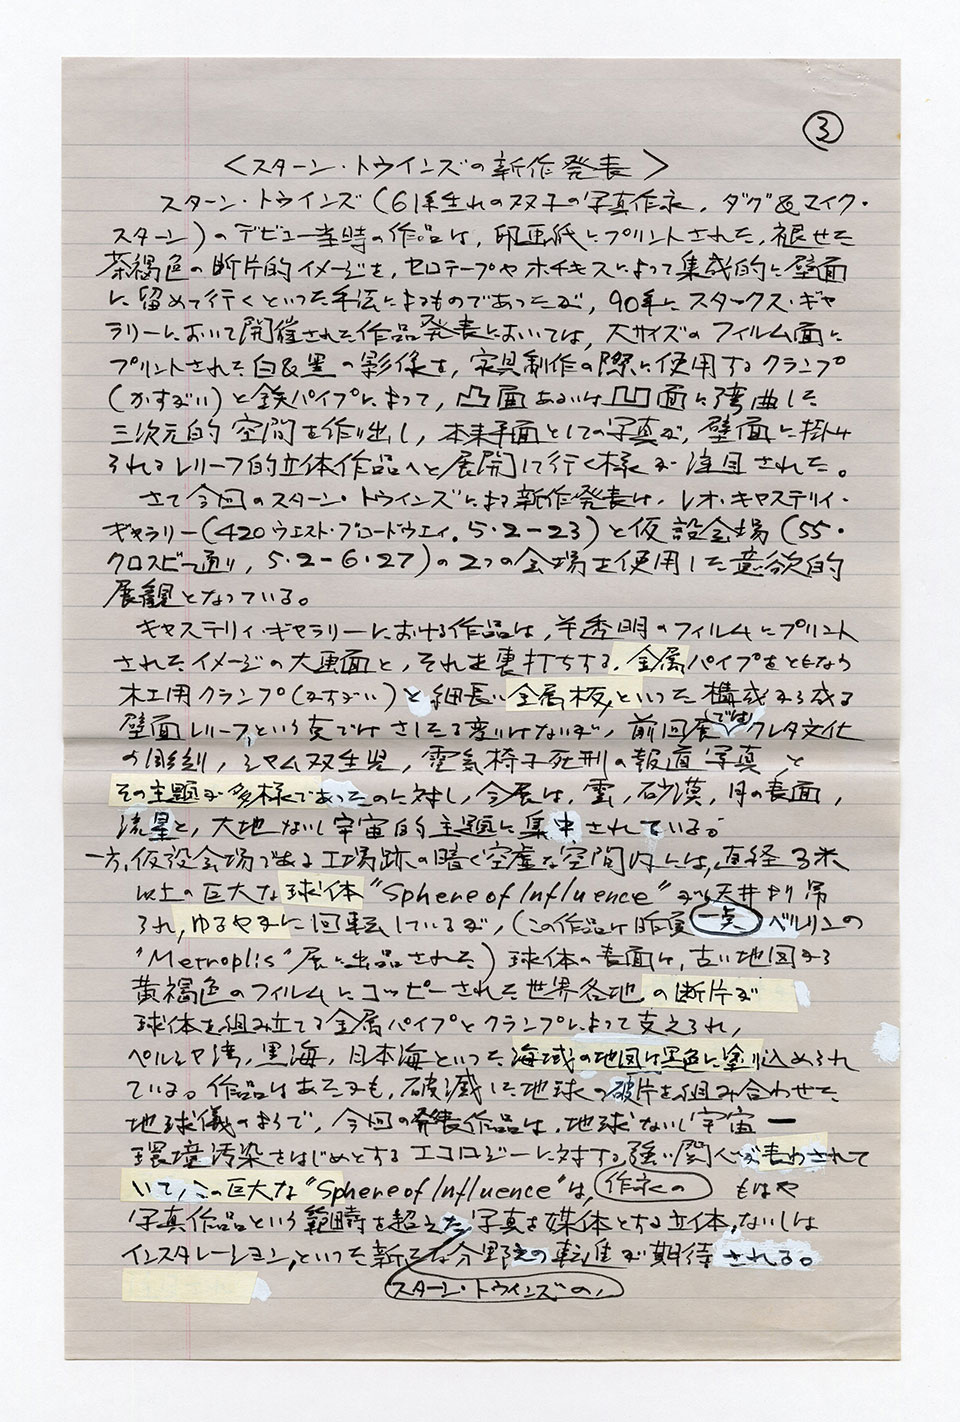 ③
〈スターン・トウインズの新作発表〉
スターン・トウインズ(61年生れの双子の写真作家、ダグ&マイク・
スターン)のデビュー当時の作品は、印画紙にプリントされた、褪せた
茶褐色の断片的イメージを、セロテープやホチキスによって集成的に壁面
に留めて行くといった手法によるものであったが、90年にスタックス・ギャ
ラリーにおいて開催された作品発表においては、大サイズのフィルム面に
プリントされた白&黒の影像を、家具制作の際に使用するクランプ
(かすがい)と鉄パイプによって、凸面あるいは凹面に弯曲した
三次元的空間を作り出し、本来平面としての写真が、壁面に掛け
られるレリーフ的立体作品へと展開して行く様が注目された。
さて今回のスターン・トウインズによる新作発表は、レオ・キャステリィ・
ギャラリー(420ウエスト・ブロードウエィ。5・2-23)と仮設会場(55・
クロスビー通り、5・2-6・27)の2つの会場を使用した意欲的
展観となっている。
キャステリィ・ギャラリーにおける作品は、半透明のフィルムにプリント
されたイメージの大画面と、それを裏打ちする、金属パイプをともなう
木工用クランプ(かすがい)と細長い金属板、といった構成から成る
壁面レリーフ、という点ではさしたる変りはないが、前回展ではクレタ文化
の彫刻、シャム双生児、電気椅子死刑の報道写真、と
その主題が多様であったのに対し、今展は、雲、砂漠、月の表面、
流星と、大地ないし宇宙的主題に集中されている。
一方、仮設会場である工場跡の暗く空虚な空間内には、直径3米
以上の巨大な球体“Sphere of Influence”が、天井より吊
られ、ゆるやかに回転しているが、(この作品は昨夏一点ベルリンの
“Metroplis”展に出品された)球体の表面は、古い地図から
黄褐色のフィルムにコッピーされた世界各地の断片が
球体を組み立てる金属パイプとクランプによって支えられ、
ペルシャ湾、黒海、日本海といった海域の地図は黒色に塗り込められ
ている。作品はあたかも、破滅した地球の破片を組み合わせた
地球儀のようで、今回の発表作品は、地球ないし宇宙ー
環境汚染をはじめとするエコロジーに対する強い関心が表わされて
いて、この巨大な“Sphere of Influence”は、作家の もはや
写真作品という範疇を超えた写真を媒体とする立体、ないしは
インスタレーション、といった新たな分野への転進が期待される。
スターン・トウインズの、